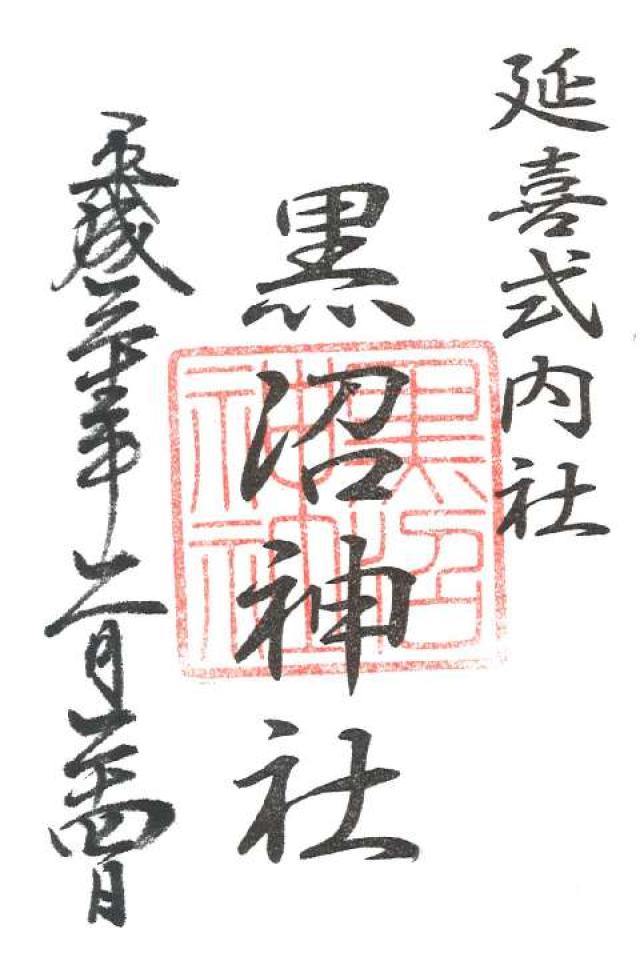 延喜式内社
黒沼神社
黒沼
神社
平成
年
二月二十四日